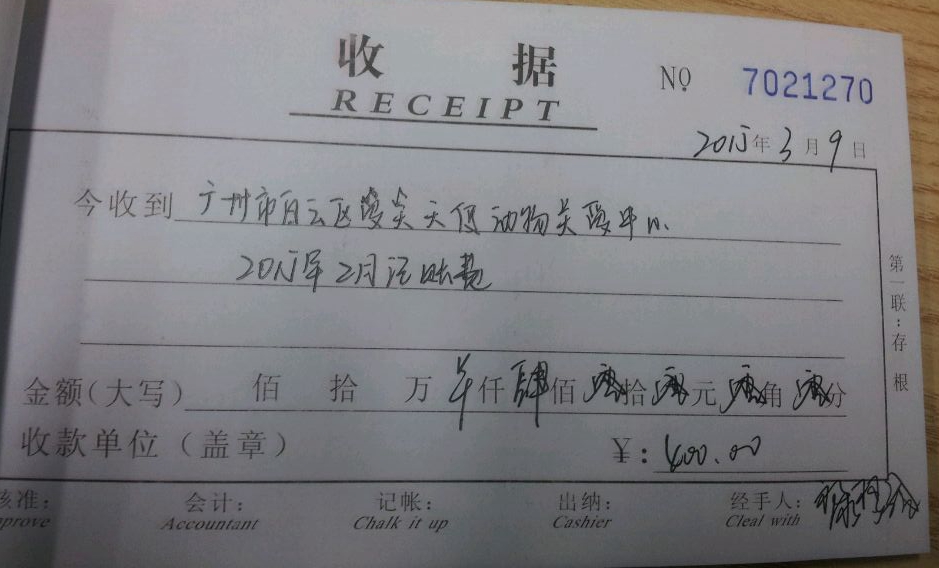 收据
RECEIPT
NO 7021270
2015年3月9日
今收到 广州市白云区爱炎天使动物关爱中心
2015年2月记账费
金额(大写) 佰 拾 万 仟肆佰零拾零元零角零分
收款单位(盖章) ¥:400.00
核准: 会计: 记帐: 出纳: 经手人:
prove Accountant Chalk it up Cashier Cleal with
第一联:存根